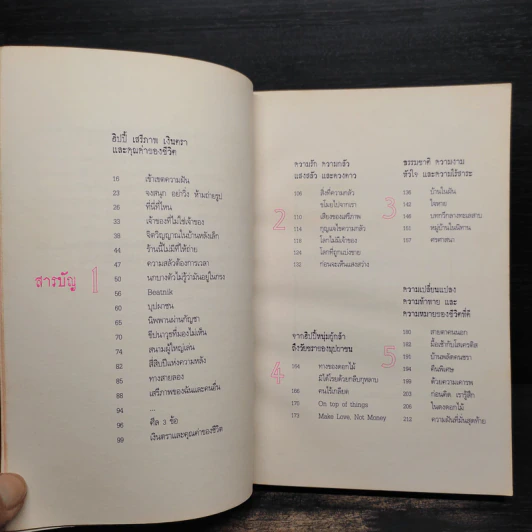 สารบัญ
1
ฮิปปี้ เสรีภาพ เงินตรา
และคุณค่าของชีวิต
16 เข้าเขตความฝัน
23 จงสนุก อย่าวิ่ง ห้ามถ่ายรูป
26 ที่นี่ที่ไหน
33 เจ้าของที่ไม่ใช่เจ้าของ
38 จิตวิญญาณในบ้านหลังเล็ก
44 ร้านนี้ไม่มีที่ให้ถ่าย
47 ความสลัวต้องการเวลา
50 นกบางตัวไม่รู้ว่ามันอยู่ในกรง
56 Beatnik
60 บุปผาชน
65 นิพพานผ่านกัญชา
69 ชีปนาวุธที่มองไม่เห็น
74 สนามผู้ใหญ่เล่น
82 สี่สิบปีแห่งความหลัง
85 ทางสายลอง
88 เสรีภาพของฉันและคนอื่น
94 ...
96 ศีล 3 ข้อ
99 เงินตราและคุณค่าของชีวิต
2
ความรัก ความกลัว
แสงสลัว และดวงดาว
106 สิ่งที่ความกลัว
ขโมยไปจากเรา
110 เสียงของเสรีภาพ
114 กุญแจไขความกลัว
118 โลกไม่มีเจ้าของ
124 โลกที่ถูกแบ่งขาย
132 ก่อนจะเห็นแสงสว่าง
3
ธรรมชาติ ความงาม
หัวใจ และความไร้สาระ
138 บ้านในฝัน
142 ใจหาย
148 บทกวีกลางทะเลสาบ
151 หมู่บ้านในนิทาน
157 ศรศาสนา
4
จากฮิปปี้หนุ่มผู้กล้า
ถึงวัยชราของบุปผาชน
164 ทางของดอกไม้
มิได้โรยด้วยกลีบกุหลาบ
168 คนไร้เกลียด
170 On top of things
173 Make Love, Not Money
5
ความเปลี่ยนแปลง
ความท้าทาย และ
ความหมายของชีวิตที่ดี
180 สายตาคนนอก
182 มื้อเช้ากับโสเครติส
192 บ้านพลัดคนชรา
194 คืนพิเศษ
199 ด้วยความเคารพ
203 ก่อนคิด เรารู้สึก
206 ในดงดอกไม้
212 ความฝันที่มั่นสุดท้าย